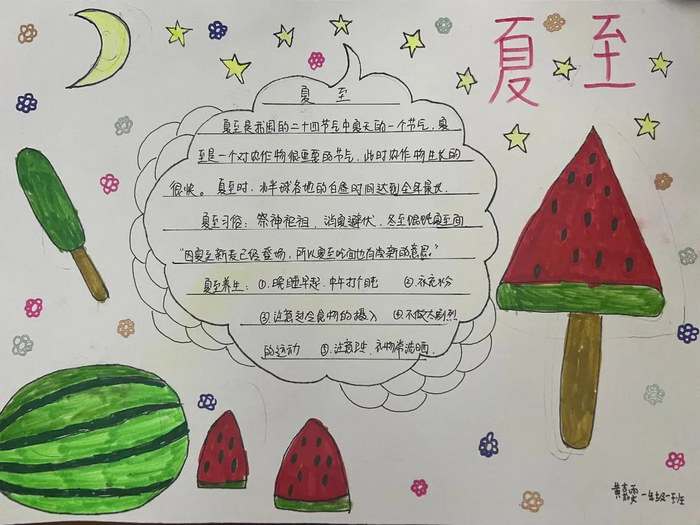 夏至
夏至
夏至是我国的二十四节气中夏天的一个节气,夏
至是一个对农作物很重要的节气,此时农作物生长的
很快。夏至时,北半球各地的白昼时间达到全年最长.
夏至习俗:祭神祀祖,消夏避伏,冬至馄饨夏至面
"因夏至新麦已经登场,所以夏至吃面也有尝新的意思."
夏至养生:①晚睡早起.中午打盹 ②补充水份
③注意食物的摄入 ④不做大剧烈
的运动 ⑤注意卫生.衣物常清晒.
一年级一班